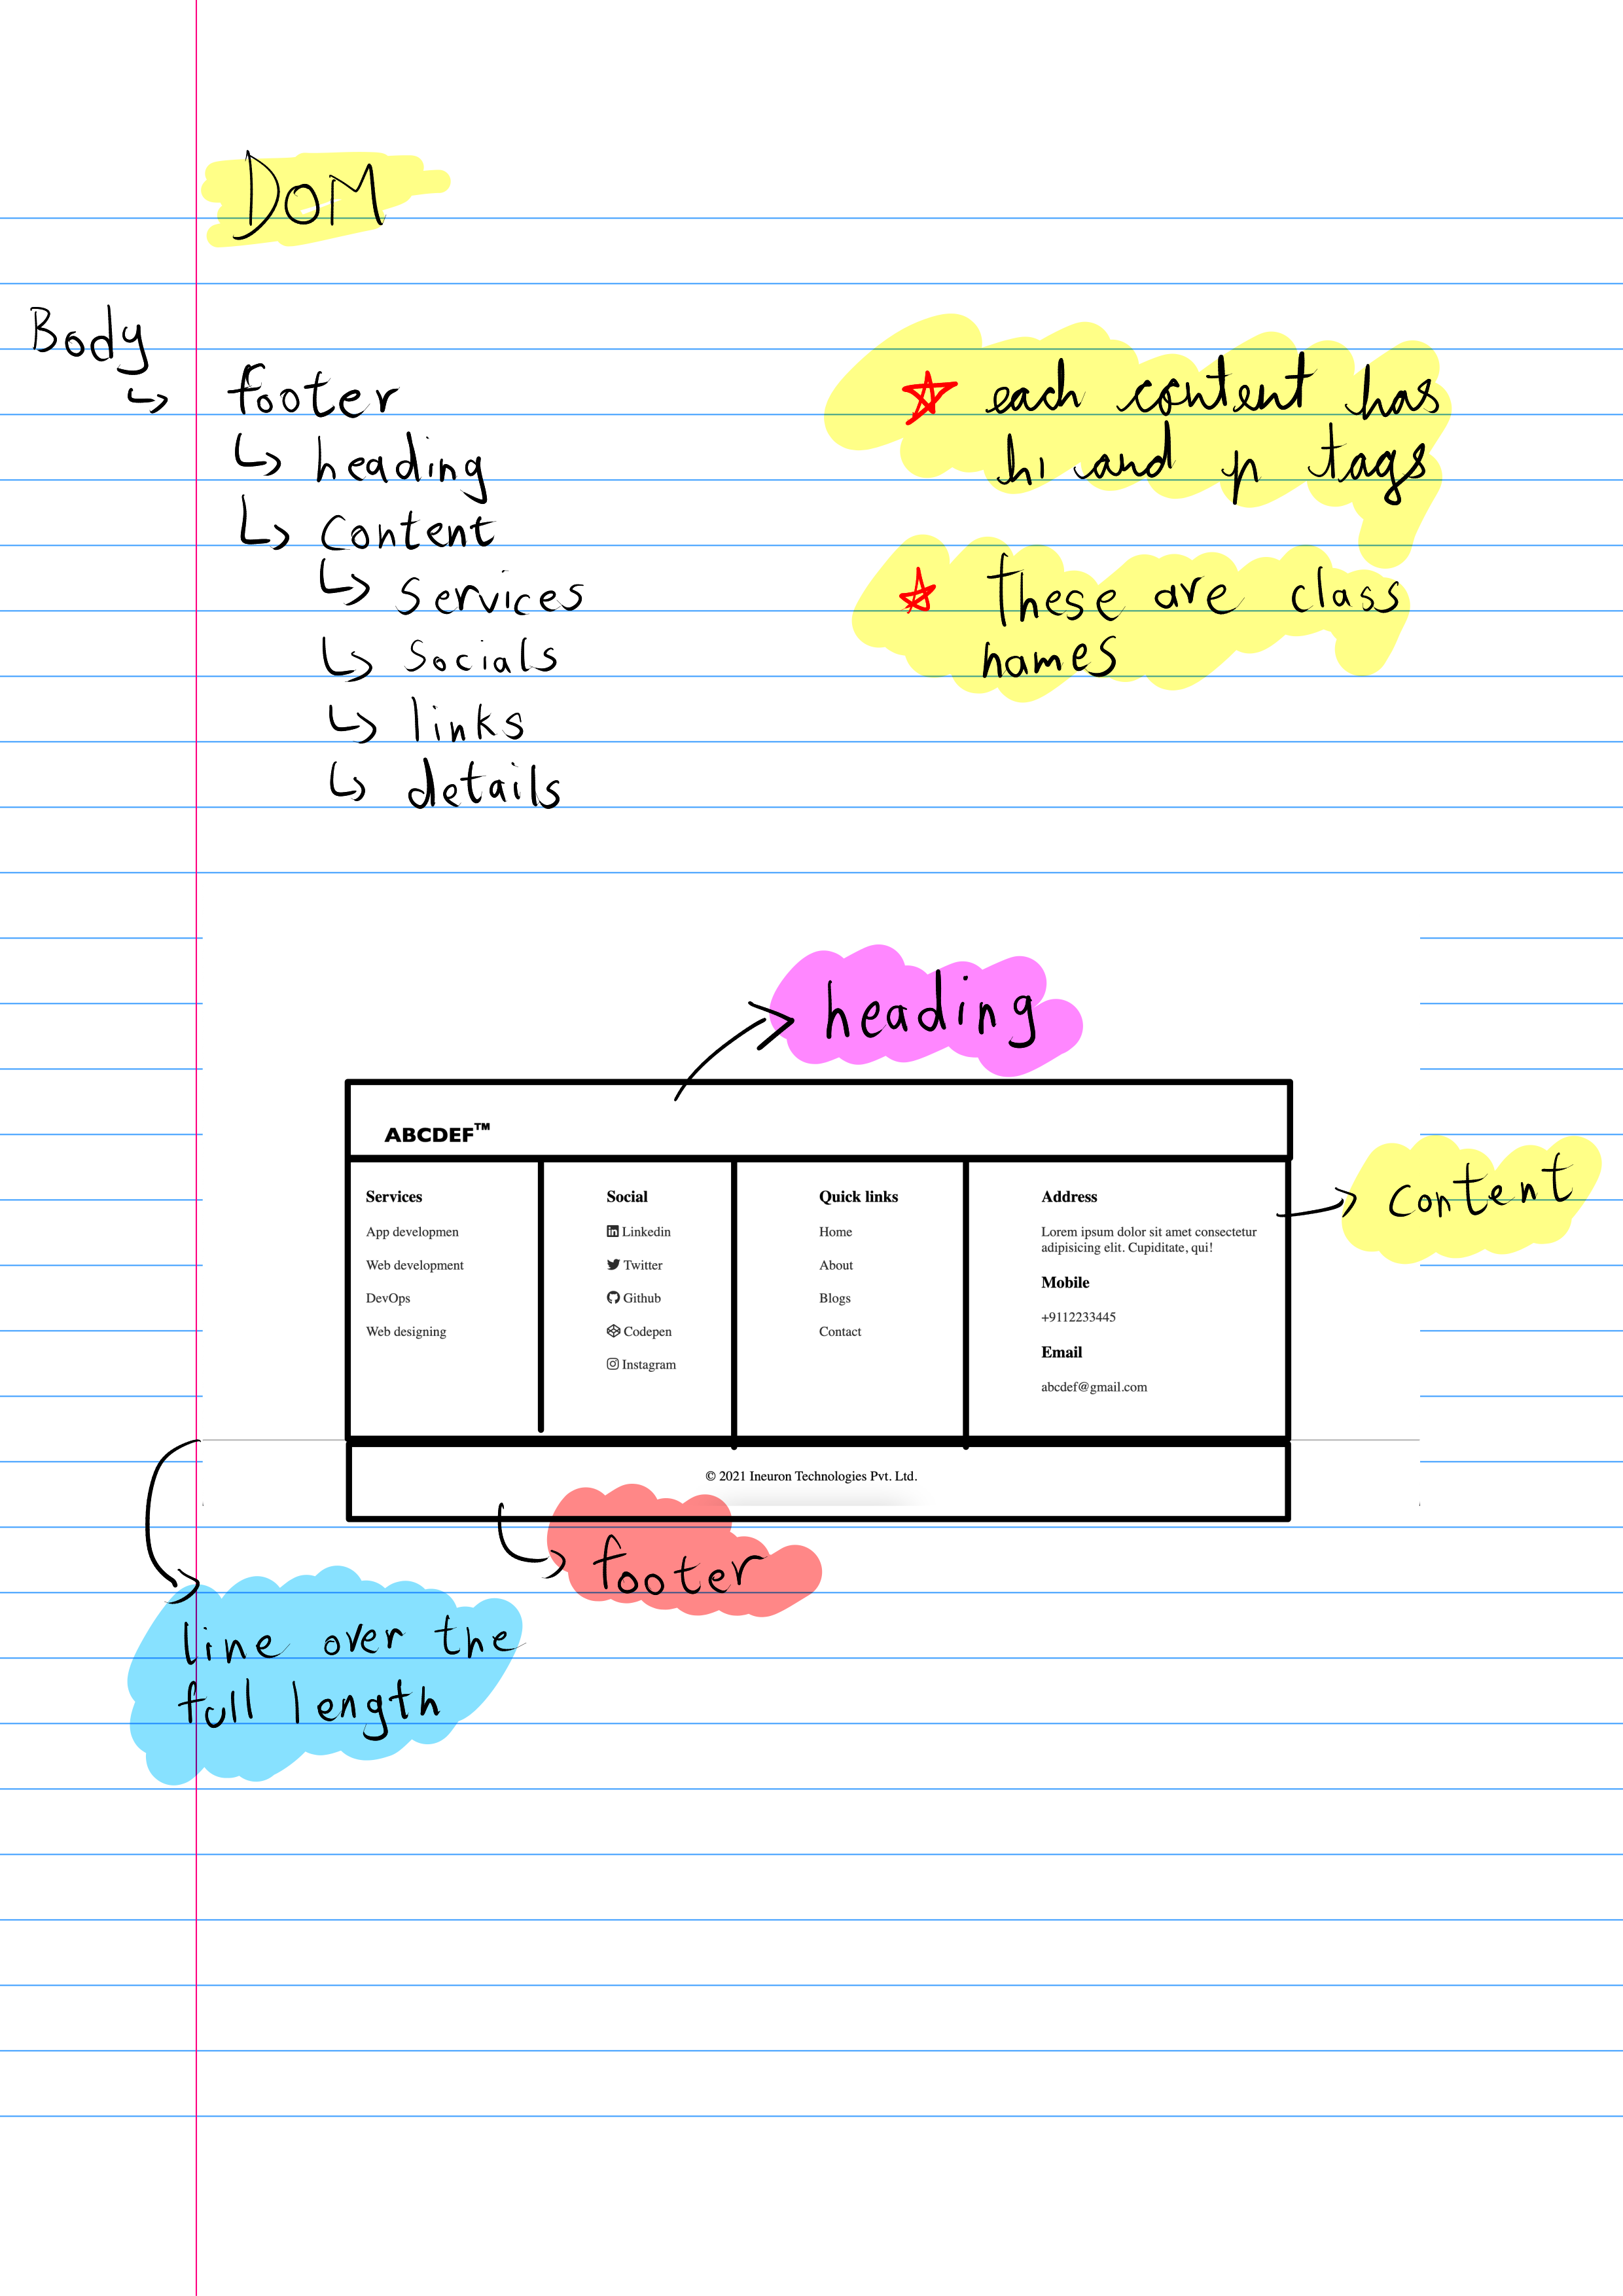 DOM
Body
footer
heading
content
services
socials
links
details
each content has
h1 and p tags
These are class
names
heading
ABCDEF™
content
Services
App developmen
Web development
DevOps
Web designing
Social
Linkedin
Twitter
Github
Codepen
Instagram
Quick links
Home
About
Blogs
Contact
Address
Lorem ipsum dolor sit amet consectetur
adipisicing elit. Cupiditate, qui!
Mobile
+9112233445
Email
abcdef@gmail.com
© 2021 Ineuron Technologies Pvt. Ltd.
footer
line over the
full length